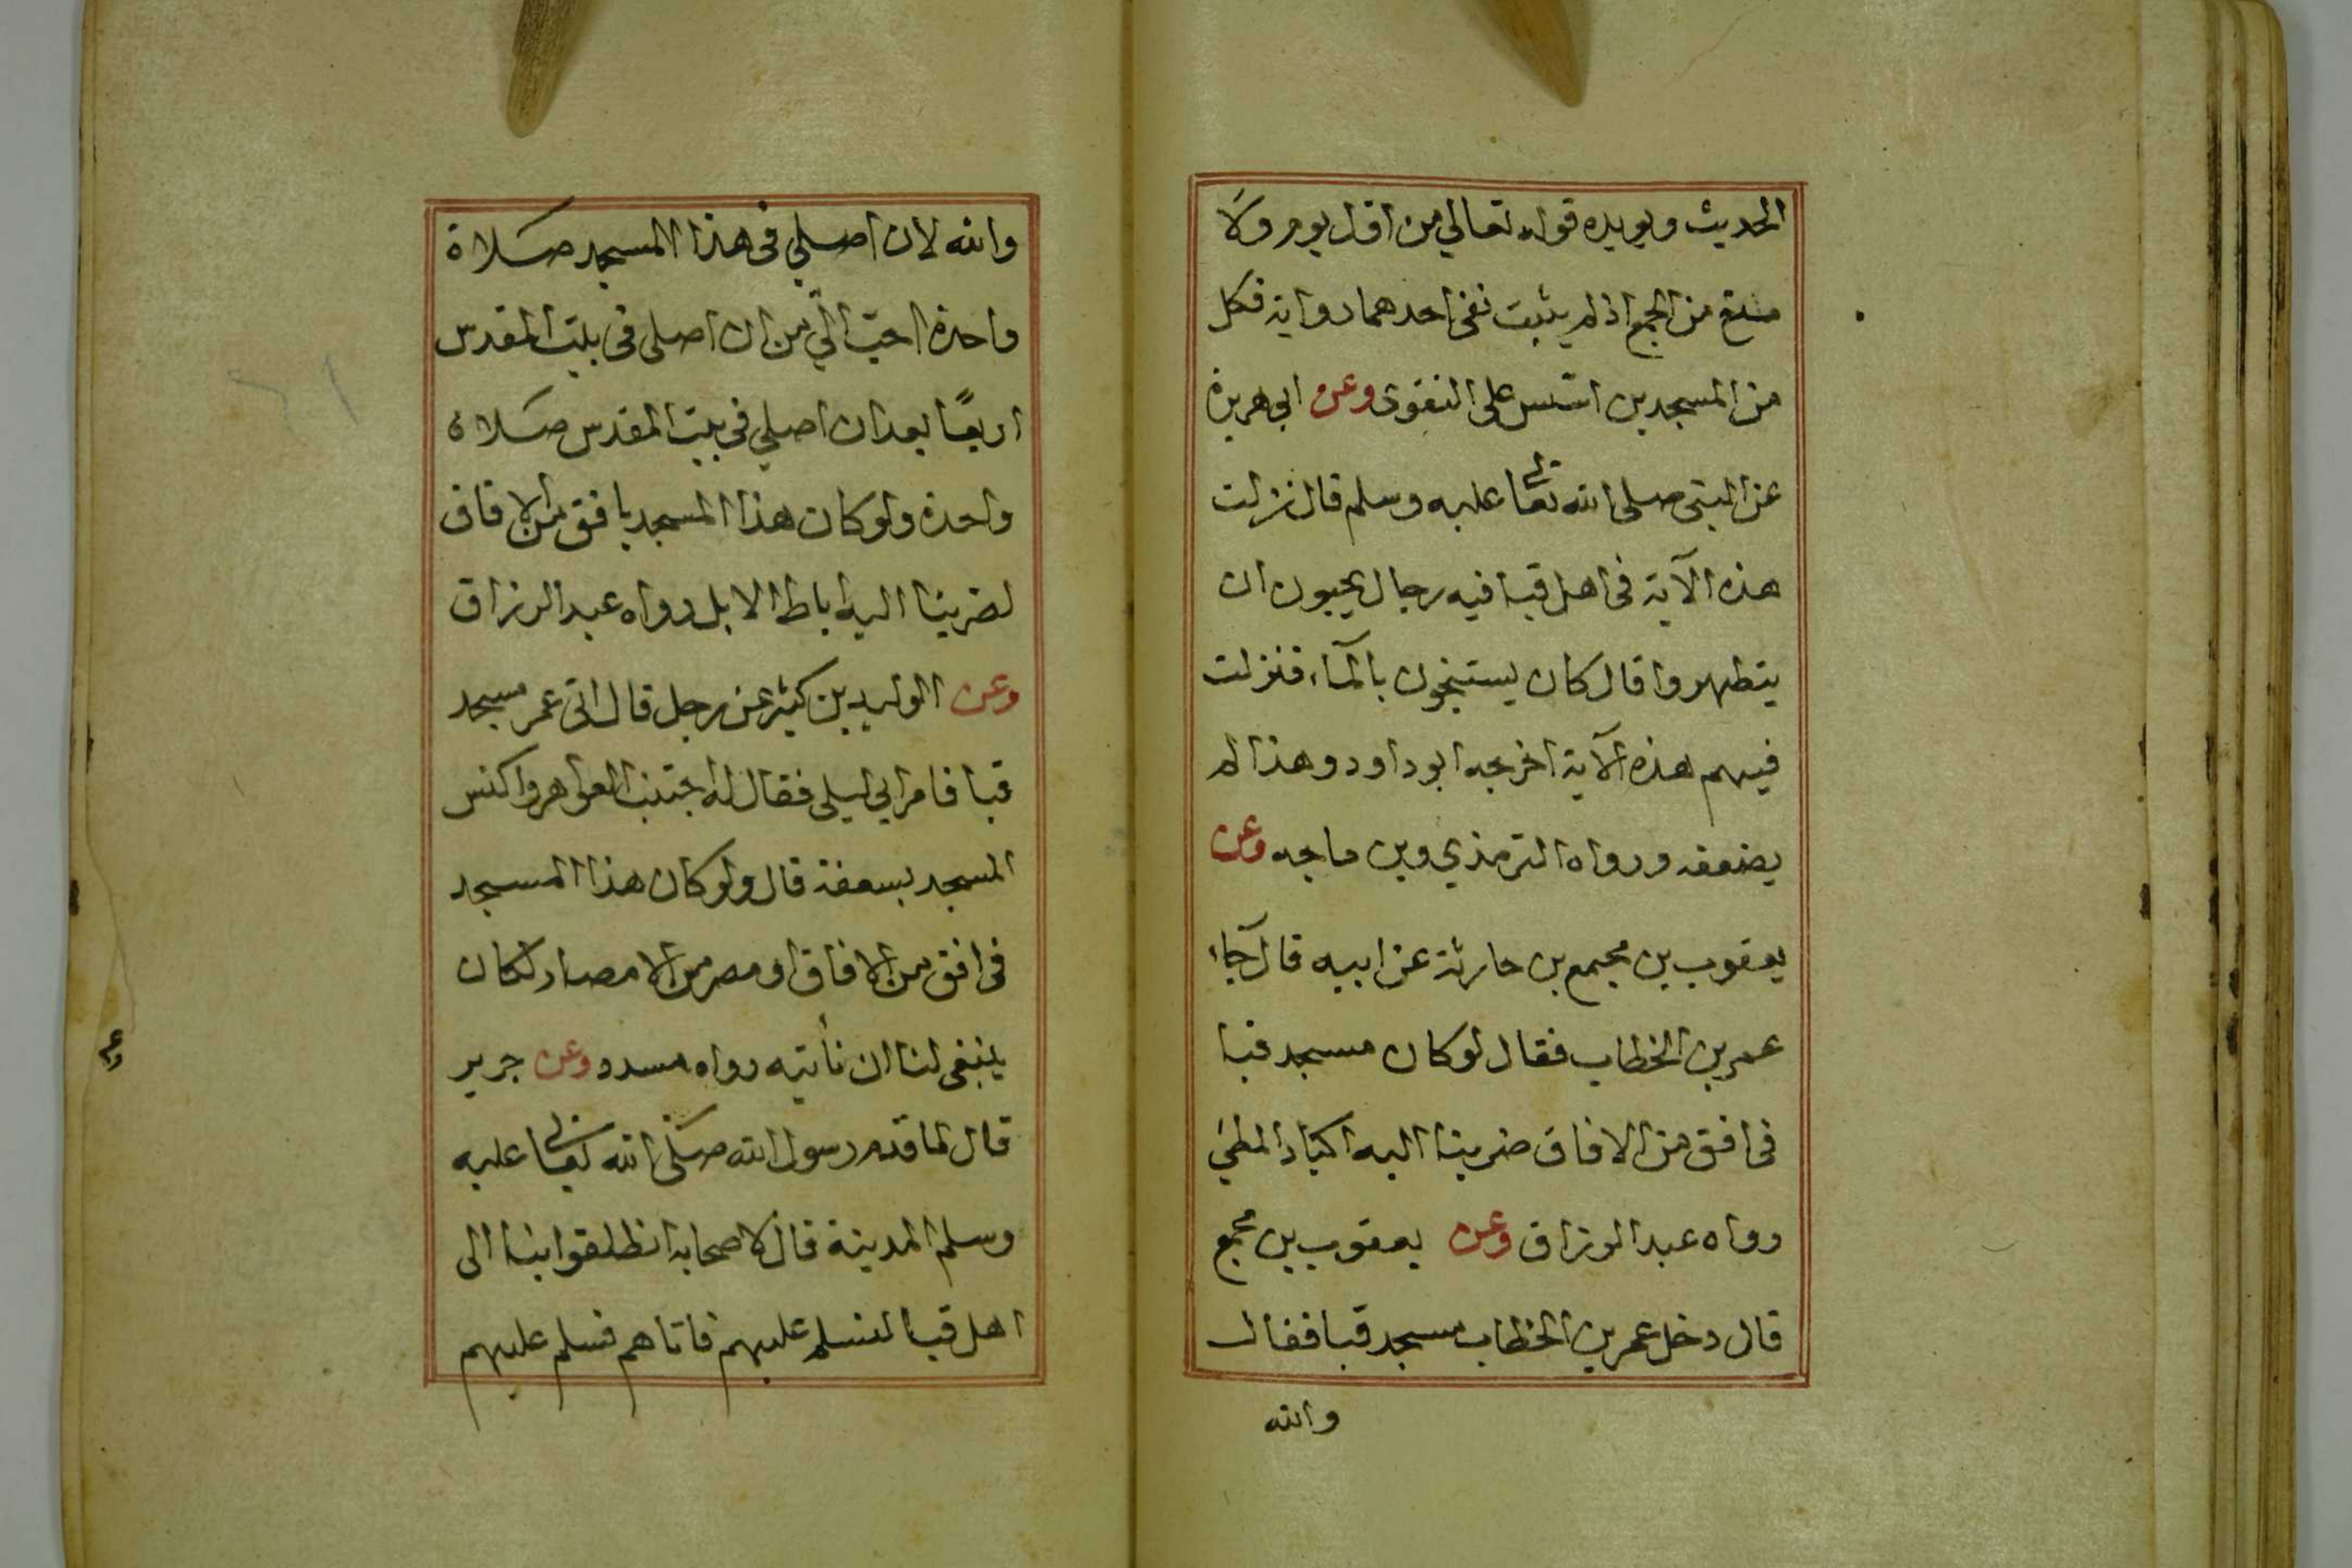 الحديث ويويده قوله تعالي من اول يوم ولا
منع من الجمع اذ لم يثبت نفى احدهما رواية فكل
من المسجدين اسّس على التقوى وعن ابي هريرة
عن النبي صلى الله تعالى عليه وسلم قال نزلت
هذه الآية فى اهل قبا فيه رجال يحبون ان
يتطهروا قال كان يستنجون بالمآء فنزلت
فيهم هذه الآية اخرجه ابو داود وهذا لم
يضعفه ورواه الترمذي وبن ماجه وعن
يعقوب بن مجمع بن حارثة عن ابيه قال جآء
عمر بن الخطاب فقال لو كان مسجد قبا
فى افق من الافاق ضربنا اليه اكباد المطي
رواه عبد الرزاق وعن يعقوب بن مجمع
قال دخل عمر بن الخطاب مسجد قبا فقال
والله
والله لان اصلي فى هذا المسجد صلاة
واحدة احبّ الّي من ان اصلى فى بيت المقدس
اربعًا بعد ان اصلي فى بيت المقدس صلاة
واحدة ولو كان هذا المسجد بافق من الافاق
لضربنا اليه اباط الابل رواه عبد الرزاق
وعن الوليد بن كثير عن رجل قال اتى عمر مسجد
قبا فامر ابي ليلى فقال له اجتنب العواهر واكنس
المسجد بسعفة قال ولو كان هذا المسجد
فى افق من الافاق او مصر من الامصار لكان
ينبغى لنا ان نأتيه رواه مسدد وعن جرير
قال لما قدم رسول الله صلى الله تعالى عليه
وسلم المدينة قال لاصحابه انطلقوا بنا الى
اهل قبا لنسلم عليهم فاتاهم فسلم عليهم